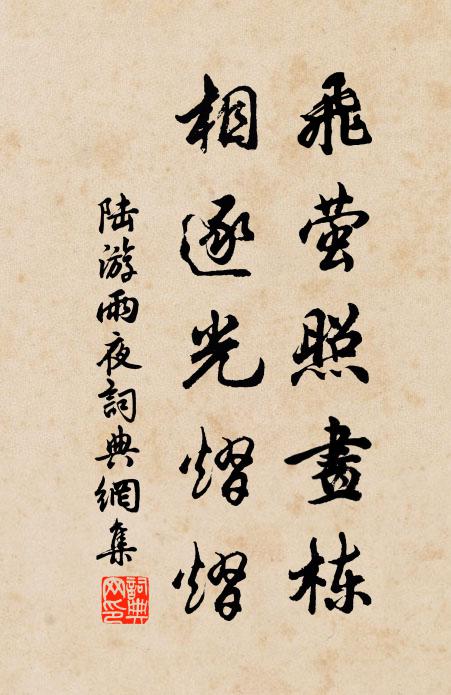 飛萤照畫栋
相逐光熠熠
陆游雨夜詞典網集
詞典網印